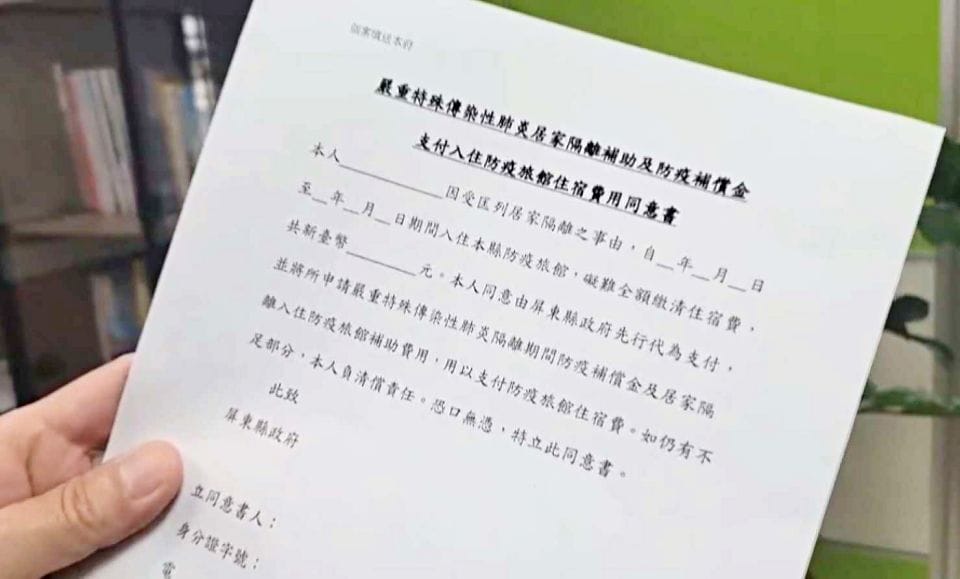 個案填送本府
嚴重特殊傳染性肺炎居家隔離補助及防疫補償金
支付入住防疫旅館住宿費用同意書
本人__________因受匡列居家隔離之事由，自__年__月__日
至__年__月__日期間入住本縣防疫旅館，礙難全額繳清住宿費，
共新臺幣________元。本人同意由屏東縣政府先行代為支付，
並將所申請嚴重特殊傳染性肺炎隔離期間防疫補償金及居家隔
離入住防疫旅館補助費用，用以支付防疫旅館住宿費。如仍有不
足部分，本人負清償責任。恐口無憑，特立此同意書。
此致
屏東縣政府
立同意書人：
身分證字號：
電